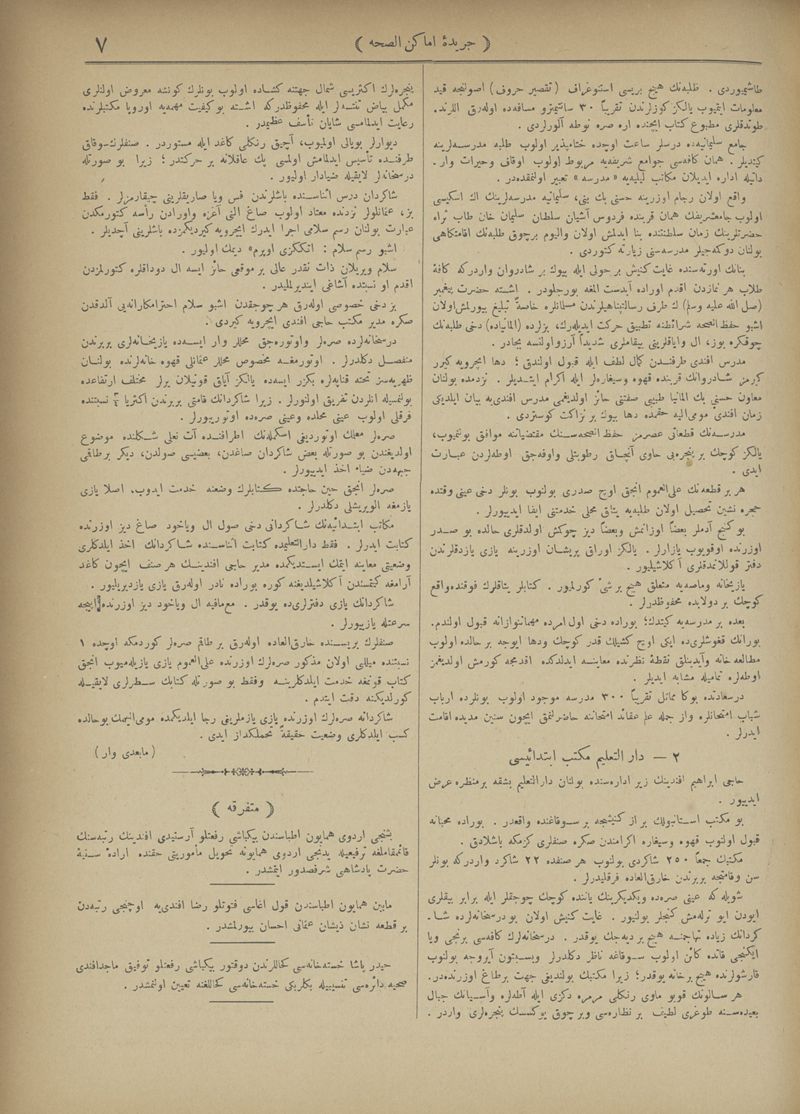 ( جريدهٔ اماكن الصحه )
٧
طاشيوردى . طلبه‌نك هيچ بريسى استنوغراف ( تقصير حروف ) اصولنجه قيد
معلومات ايتميوب يالكز كوزلرندن تقريباً ٣٠ سانتيمترو مسافه‌ده اوله‌رق اللرنده
طوتدقلرى مطبوع كتاب ايچنده اره صره نوطه آلورلردى .
جامع سليمانيه‌ده درسلر ساعت اوچده ختامپذير اولوب طلبه مدرسه‌لرينه
كيتديلر . همان كافه‌سى جوامع شريفه‌يه مربوط اولوب اوقافى وخيرات وار
داتيله اداره ايديلان مكاتب ليليه‌يه « مدرسه » تعبير اولنمقده‌در .
واقع اولان رجام اوزرينه حسنى بك بنى، سليمانيه مدرسه‌لرينك اك اسكيسى
اولوب جامعشريفك همان قربنده فردوس آشيان سلطان سليمان خان طاب ثراه
حضرتلرينك زمان سلطنتنده بنا ايدلمش اولان واليوم برچوق طلبه‌نك اقامتكاهى
بولنان دوكمه‌جيلر مدرسه‌سنى زيارته كتوردى .
بنانك اورته‌سنده غايت كنيش بر حولى ايله بيوك بر شادروان واردركه كافهٔ
طلاب هر نمازدن اقدم اوراده آبدست المغه بورجلودر . اشته حضرت پيغمبر
(صل الله عليه وسلم) ك طرف رسالتپناهيلرندن مسلمانلره خاصةً تبليغ بيورلمش‌اولان
اشبو حفظ الصحه شرائطنه تطبيق حركت ايديله‌رك، بزلرده (المانياده) دخى طلبه‌نك
چوقكره يوز، ال واياقلرينى ييقاملرى شديداً آرزو اولنسه بجادر .
مدرس افندى طرفندن كمال لطف ايله قبول اولندق ؛ دها ايچرويه كيرر
كيرمز شادروانك قربنده قهوه وسيغاره‌لر ايله اكرام ايتديلر . نزدمده بولنان
معاون حسنى بك المانيا طبيبى صفتنى حائز اولديغمى مدرس افندى‌يه بيان ايلديكى
زمان افندى مومى‌اليه حقمده دها بيوك بر نزاكت كوستردى .
مدرسه‌نك قطعاتى عصرمز حفظ الصحه‌سنك مقتضياتنه موافق بولنميوب،
يالكز كوچك بر پنجره‌يى حاوى آلچاق رطوبتلى واوفه‌جق اوطه‌لردن عبارت
ايدى .
هر بر قطعه‌نك على‌العموم انجق اوچ صدرى بولنوب بونلر دخى عينى وقتده
حجره نشين تحصيل اولان طلبه‌يه يتاق محلى خدمتنى ايفا ايدييورلر .
بو كنج آدملر بعضاً اوزانمش وبعضاً ديز چوكمش اولدقلرى حالده بو صدر
اوزرنده اوقويوب يازارلر . يالكز اوراق پريشان اوزرينه يازى يازدقلرندن
دفتر قوللانمدقلرى آكلاشيليور .
يازيخانه وماصه‌يه متعلق هيچ برشئ كورلميور . كتابلر يتاقلرك فوقنده‌واقع
كوچك بر دولابده محفوظدرلر .
بعده بر مدرسه‌يه كيتدك؛ بوراده دخى اول امرده مهماننوازانه قبول اولندم.
بورانك قغوشلرى‌ده ايكى اوچ كشيلك قدر كوچك ودها ايوجه بر حالده اولوب
مطالعه خانه وآيدينلق نقطهٔ نظرنده معاينه ايدلدكده اقدمجه كورمش اولديغمز
اوطه‌لره تماميله مشابه ايديلر .
درسعادتده بوكا مماثل تقريباً ٣٠٠ مدرسه موجود اولوب بونلرده ارباب
شباب امتحانلره واز جمله علم عقائد امتحاننه حاضرلنمق ايچون سنين مديده اقامت
ايدرلر .
٢ — دار التعليم مكتب ابتدائيسى
حاجى ابراهيم افندينك زير اداره‌سنده بولنان دارالتعليم بشقه برمنظره عرض
ايدييور .
بو مكتب استانبولك براز كنيشجه بر سوقاغنده واقعدر . بوراده محبانه
قبول اولنوب قهوه وسيغاره اكرامندن صكره صنفلرى كزمكه باشلادق .
مكتبك جمعاً ٢٥٠ شاكردى بولنوب هر صنفده ٢٢ شاكرد واردركه بونلر
سن وقامتجه بربرندن خارق‌العاده فرقليدرلر .
شويله كه عينى صره‌ده ويكديكرينك ياننده كوچك چوجقلر ايله برابر بيقلرى
ايودن ايو ترله‌مش كنجلر بولنيور . غايت كنيش اولان بو درسخانه‌لرده شا-
كردانك زياده تهاجمنه هيچ بر ديه‌جك يوقدر . درسخانه‌لرك كافه‌سى برنجى ويا
ايكنجى قاتده كائن اولوب سوقاغه ناظر دكلدرلر وبسبتون آيروجه بولنوب
قارشولرنده هيچ بر خانه يوقدر؛ زيرا مكتبك بولنديغى جهت بر طاغ اوزرنده‌در.
هر سالونك قويو ماوى رنكلى مرمره دكزى ايله آطه‌لره وآسيانك جبال
بعيده‌سنه طوغرى لطيف بر نظاره‌سى وبر چوق يوكسك پنجره‌لرى واردر .
پنجره‌لرك اكثريسى شمال جهتنه كشاده اولوب بونلرك كونشه معروض اولنلرى
مكمل بياض تنته‌لر ايله محفوظدركه اشته بو كيفيت مهمه‌يه اوروپا مكتبلرنده
رعايت ايدلمامسى شايان تأسف عظيمدر .
ديوارلر بويالى اولميوب، آچيق رنكلى كاغد ايله مستوردر . صنفلرك‌وقاق
طرفنده تأسيس ايدلمامش اولمسى پك عاقلانه بر حركتدر ؛ زيرا بو صورتله
درسخانه‌لر لايقيله ضيادار اوليور .
شاكردان درس اثناسنده باشلرندن فس ويا صاريقلرينى چيقارمزلر . فقط
بز، عثمانلولر نزدنده معتاد اولوب صاغ النى آغزه واورادن رأسه كتورمكدن
عبارت بولنان رسم سلامى اجرا ايدرك ايچرويه كيرديكمزده باشلرينى آچديلر .
اشبو رسم سلام : اتككزى اوپرم» ديمك اوليور .
سلام ويريلان ذات نقدر عالى بر موقعى حائز ايسه ال دوداقلره كتورلمزدن
اقدم او نسبتده آشاغى اينديرلمليدر .
بز دخى خصوصى اوله‌رق هر چوجقدن اشبو سلام احترامكارانه‌يى آلدقدن
صكره مدير مكتب حاجى افندى ايچرويه كيردى .
درسخانه‌لرده صره‌لر واوتوره‌جق محللر وار ايسه‌ده يازيخانه‌لرى بربرندن
منفصل دكلدرلر . اوتورمغه مخصوص محللر عثمانلى قهوه خانه‌لرنده بولنان
ظهريه‌سز تخته قنابه‌لره بكزر ايسه‌ده يالكز آياق قونيلان يرلر مختلف ارتفاعده
بولنمسيله انلردن تفريق اولنورلر . زيرا شاكردانك قامتى بربرندن اكثريا نسبتنده
فرقلى اولوب عينى محلده وعينى صره‌ده اوتورييورلر .
صره‌لر معلمك اوتورديغى اسكمله‌نك اطرافنده آت نعلى شكلنده موضوع
اولديغندن بو صورتله بعض شاكردان صاغدن، بعضيسى صولدن، ديكر برطاقمى
جبهه‌دن ضياء اخذ ايدييورلر .
صره‌لر انجق حين حاجتده كتابلرك وضعنه خدمت ايدوب، اصلا يازى
يازمغه الويريشلى دكلدرلر .
مكاتب ابتدائيه‌نك شاكردانى دخى صول ال وياخود صاغ ديز اوزرنده
كتابت ايدرلر . فقط دارالتعليمده كتابت اثناسنده شاكردانك اخذ ايلدكلرى
وضعيتى معاينه ايتمك ايستديكمده مدير حاجى افندينك هر صنف ايچون كاغد
آرامغه كيتمسندن آكلاشيلديغنه كوره بوراده نادر اوله‌رق يازى يازديريليور .
شاكردانك يازى دفترلرى‌ده يوقدر . مع‌مافيه ال وياخود ديز اوزرنده ايجه
سرعتله يازييورلر .
صنفلرك بريسنده خارق‌العاده اوله‌رق بر طاقم صره‌لر كوردمكه اوچده ١
نسبتنده ميللى اولان مذكور صره‌لرك اوزرنده على‌العموم يازى يازيله‌ميوب انجق
كتاب قونمغه خدمت ايلدكلرينه وفقط بو صورتله كتابك سطرلرى لايقيله
كورلديكنه دقت ايتدم .
شاكردانه صره‌لرك اوزرنده يازى يازملرينى رجا ايلديكمده مومى‌اليهمك بوحالده
كسب ايلدكلرى وضعيت حقيقةً تحملكداز ايدى .
( مابعدى وار )
( متفرقه )
بشنجى اردوى همايون اطباسندن بيكباشى رفعتلو آرستيدى افندينك رتبه‌سنك
قائممقاملغه ترفيعيله يدنجى اردوى همايونه تحويل مأموريتى حقنده ارادهٔ سنيهٔ
حضرت پادشاهى شرفصدور ايتمشدر .
مابين همايون اطباسندن قول اغاسى فتوتلو رضا افندى‌يه اوچنجى رتبه‌دن
بر قطعه نشان ذيشان عثمانى احسان بيورلمشدر .
حيدر پاشا خسته‌خانه‌سى كحاللرندن دوقتور بيكباشى رفعتلو توفيق ماجدافندى
صحيه دائره‌سى تنسيبيله بكلربكى خسته‌خانه‌سى كحاللغنه تعيين اولنمشدر .